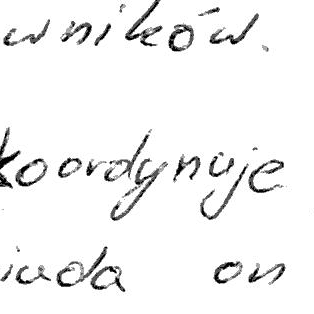 wników.
koordynuje
iada on